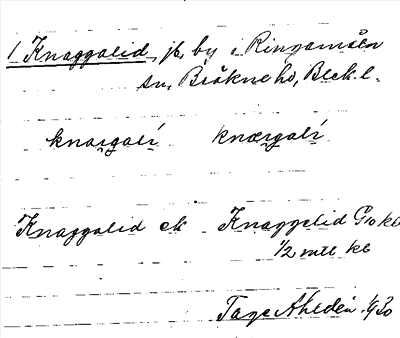 1 Knaggalid, jb, by i Ringamåla
sn, Bräkne hd, Blek. l.
knaggalí knæggalí
Knaggalid ek Knaggelid Gsokb
1/2 mtl kb
Tage Ahldén 1930